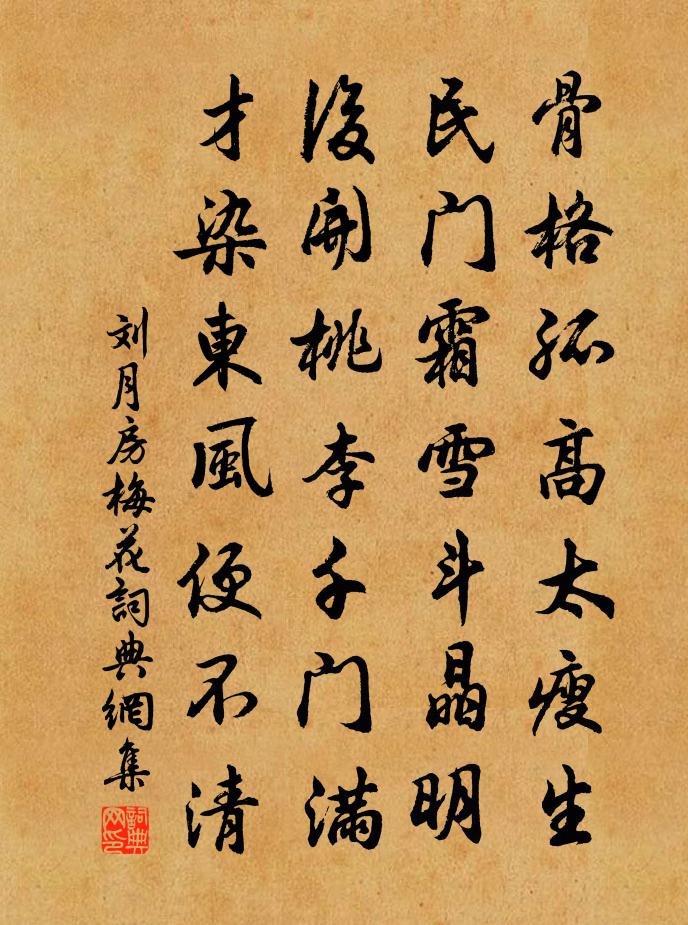 骨格孤高太瘦生
民門霜雪斗晶明
後開桃李千門滿
才染東風便不清
刘月房梅花詞典網集
詞典網印